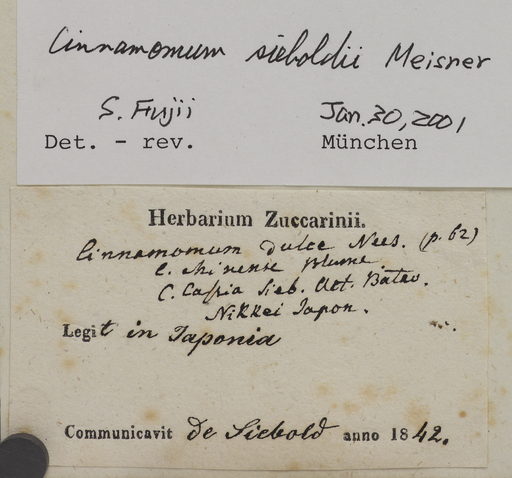 Cinnamomum sieboldii Meisner
S. Fujii Jan. 30, 2001
Det. - rev. München
Herbarium Zuccarinii.
Cinnamomum dulce Nees. (p. 62)
C. chinense Blume
C. Cassia Sieb. Act. Batav.
Nikkei Japon.
Legit in Japonia
Communicavit de Siebold anno 1842.